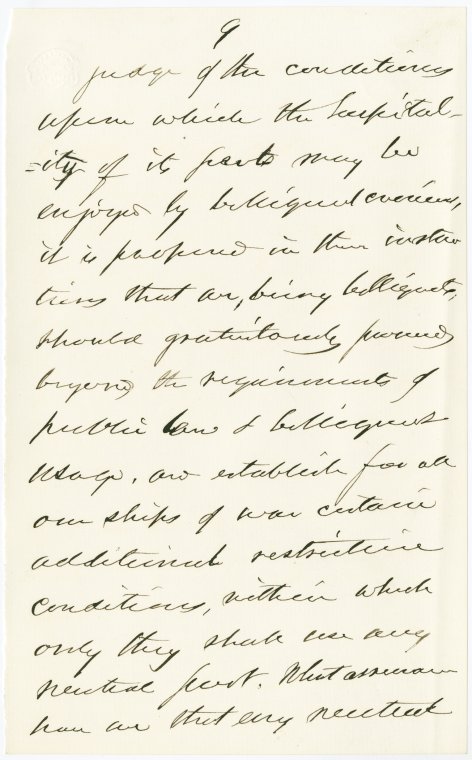 9
judge of the conditions
upon which the hospital-
-ity of its ports may be
enjoyed by belligerent cruisers,
it is proposed in these instruc
tions that we, being belligerents,
should gratuitously proceed
beyond the requirements of
public law & belligerent
usage, and establish for all
our ships of war certain
additional restrictive
conditions, within which
only they shall use any
neutral port. What assurance
have we that any neutral